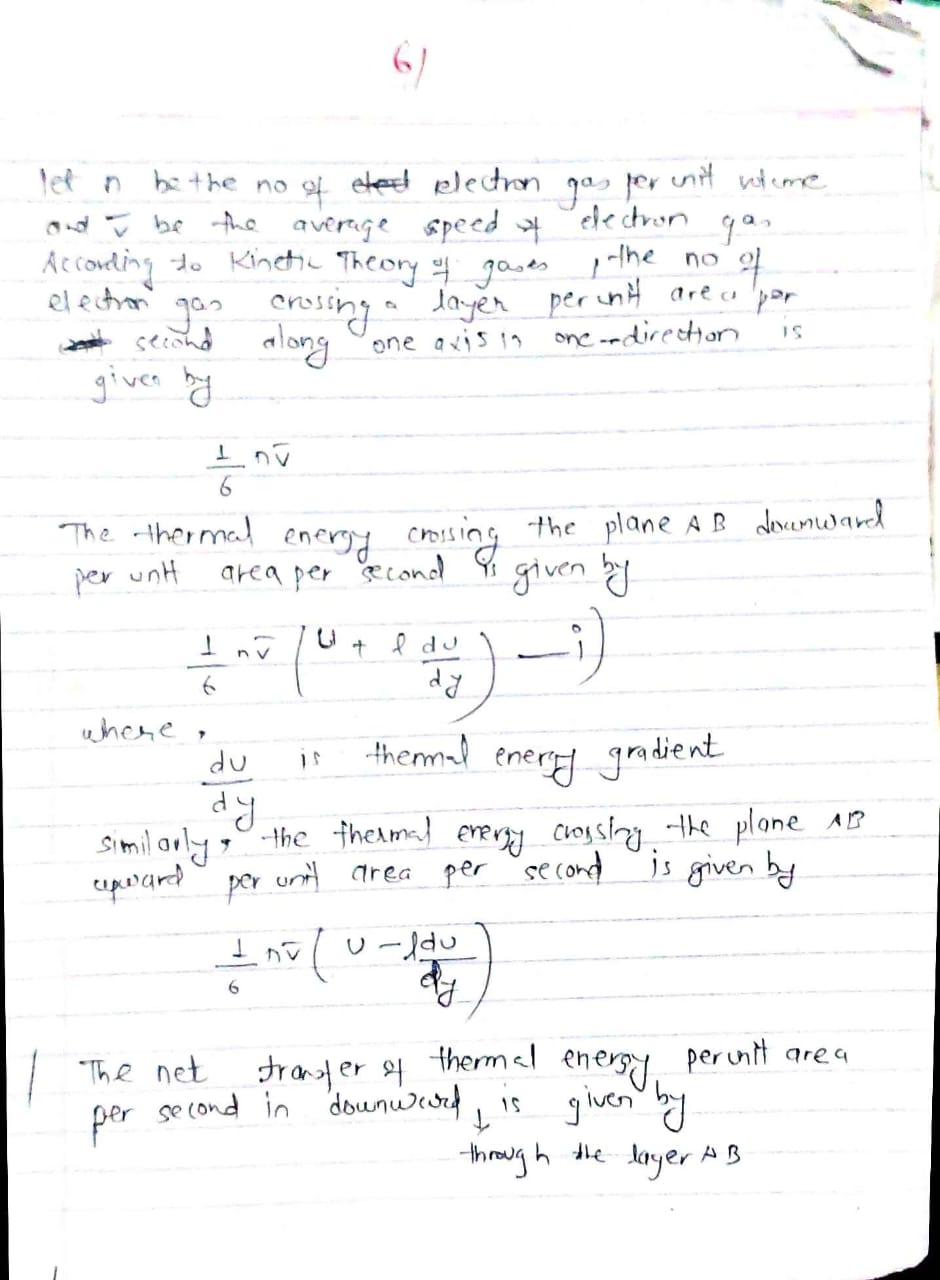 6/
let n be the no of electron gas per unit volume
and v̄ be the average speed of electron gas
According to Kinetic Theory of gases , the no of
electron gas crossing a layer per unit area per
second along one axis in one direction is
given by
1/6 nv̄
The thermal energy crossing the plane AB downward
per unit area per second is given by
1/6 nv̄ (U + l du/dy) — i)
where ,
du/dy is thermal energy gradient
similarly, the thermal energy crossing the plane AB
upward per unit area per second is given by
1/6 nv̄ (U - l du/dy)
The net transfer of thermal energy per unit area
per second in downward ↓ is given by
through the layer AB